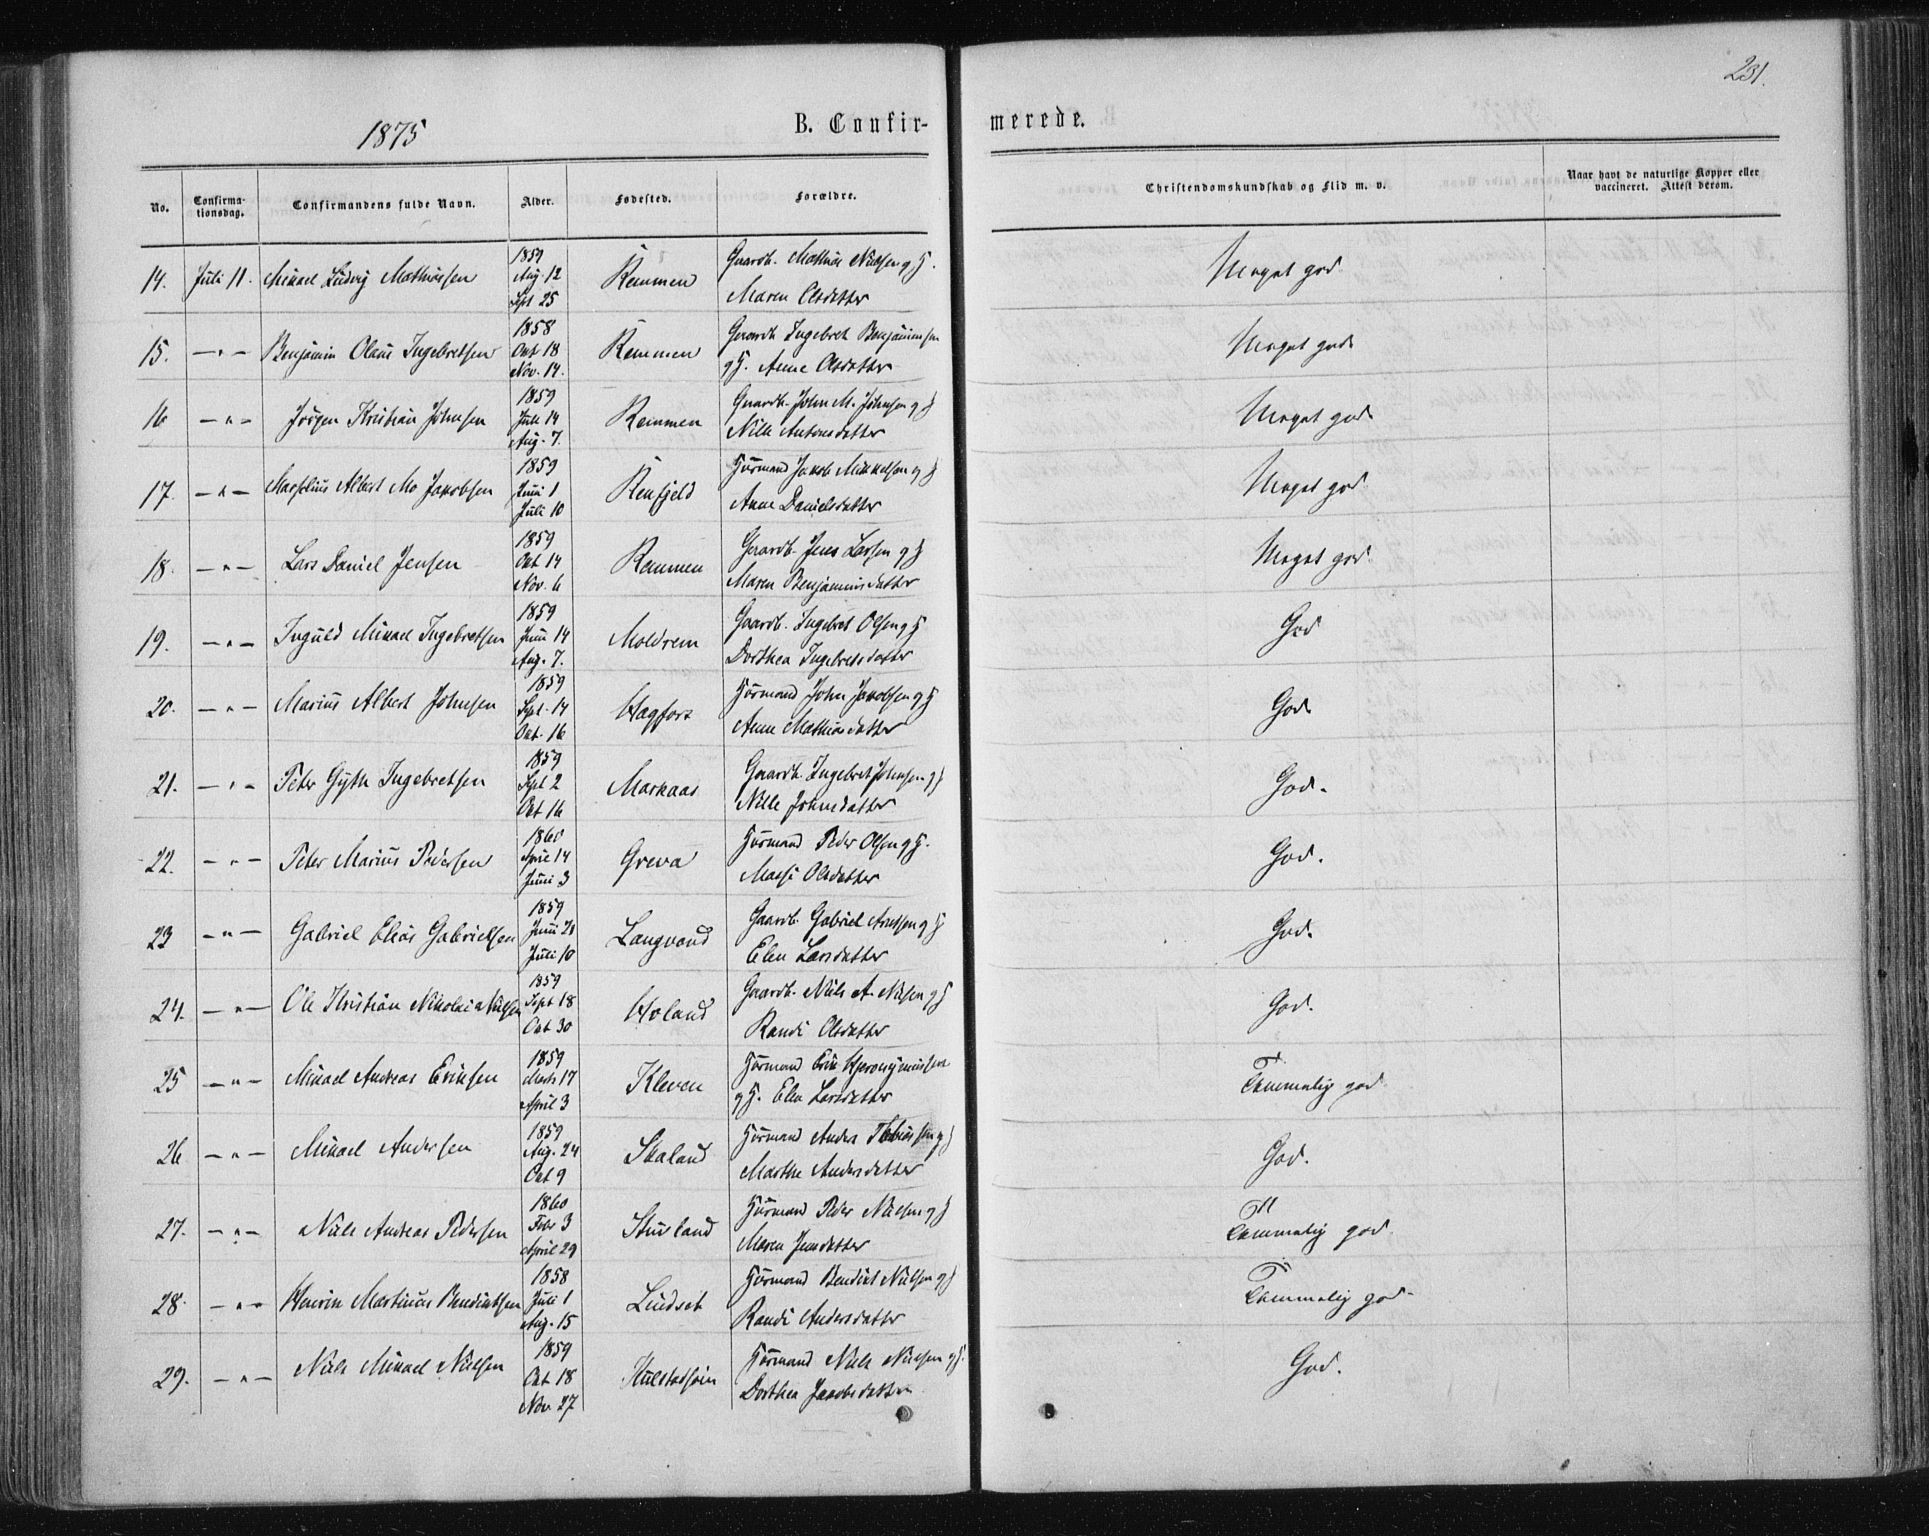 231.
1875
B. Confir-
merede.
No.
Confirma-
tionsdag.
Confirmandens fulde Navn.
Alder.
Fødested.
Forældre.
Christendomskundskab og Flid m. v.
Naar havt de naturlige Kopper eller
vaccineret. Attest derom.
14. Juli 11. Mikael Ludvig Mathiasen 1859 Aug. 12 Sept 25 Remmen Gaardb. Mathias Nielsen og H. Maren Olsdatter Meget god
15. —"— Benjamin Olaus Ingebretsen 1858 Okt 18 Nov. 14. Remmen Gaardb Ingebret Benjaminsen og H. Anne Olsdatter Meget god
16 —"— Jørgen Kristian Johnsen 1859 Juli 14 Aug. 7. Remmen Gaardb. John M. Johnsen og H Nille Antonsdatter Meget god
17. —"— Albert Mo Jakobsen 1859 Juni 1 Juli 10 Renfjeld Huusmand Jakob Mikkelsen og H Anne Danielsdatter Meget god
18. —"— Lars Daniel Jensen 1859 Okt 14 Nov. 6 Remmen Gaardb. Jens Larsen og H Maren Benjaminsdatter Meget god
19. —"— Inguld Mikael Ingebretsen 1859 Juni 14 Aug. 7. Moldrem Gaardb. Ingebret Olsen og H Dorthea Ingebretsdatter God
20. —"— Marius Albert Johnsen 1859 Sept. 14 Okt. 16 Hagfors Huusmand John Jakobsen og H Anne Mathiasdatter God
21. —"— Peter Gyth Ingebretsen 1859 Sept 2 Okt 16 Markaas Gaardb. Ingebret Johnsen og H Nille Johnsdatter God.
22. —"— Peter Marius Pedersen 1860 April 14 Juni 3 Greva Huusmand Peder Olsen og H. Olsdatter God.
23 —"— Gabriel Elias Gabrielsen 1859 Juni Juli 10 Langvand Gaardb. Gabriel Arntsen og H Elen Larsdatter God.
24. —"— Ole Kristian Nikolai Nielsen 1859 Sept 18 Okt 30 Hvland Gaardb. Niels A. Nielsen og H Randi Olsdatter God.
25 —"— Mikael Andreas Eriksen 1859 Marts 17 April 3 Kleven Huusmand Erik Hieronymussen og H. Elen Larsdatter Temmelig god
26 —"— Mikael Andersen 1859 Aug. 24 Okt 9 Skaland Huusmand Anders Tobiassen og H Marthe Andersdatter God.
27. —"— Niels Andreas Pedersen 1860 Febr 3 April 29 Huusmand Peder Nielsen og H Maren Jensdatter Temmelig god
28. —"— Henrik Martinus Bendiktsen 1858 Juli 1 Aug. 15 Lindset Huusmand Bendikt Nielsen og H Randi Andersdatter Temmelig god.
29. —"— Niels Mikael Nielsen 1859 Okt 18 Nov 27 Huusmand Niels Nielsen og H. Dorthea Jakobsdatter God.